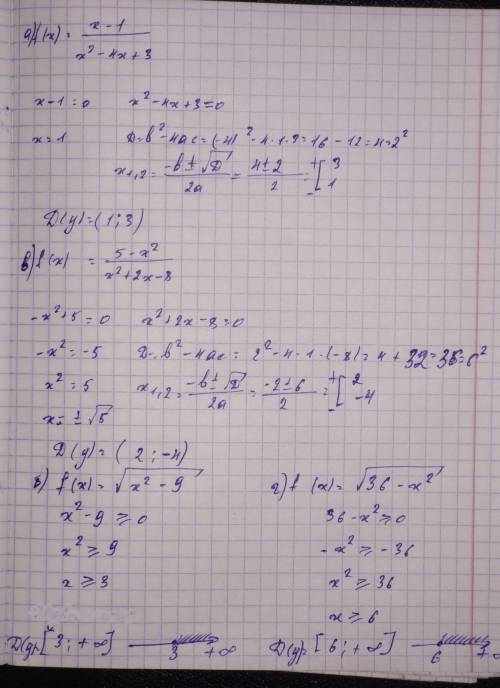 а) f(x) = (x-1)/(x²-4x+3)
x-1=0    x²-4x+3=0
x=1    D=b²-4ac=(-4)²-4·1·3=16-12=4=2²
x₁,₂ = (-b±√D)/2a = (4±2)/2 = [3 1
D(y)=(1;3)
б) f(x) = (5-x²)/(x²+2x-8)
-x²+5=0    x²+2x-8=0
-x²=-5    D=b²-4ac=2²-4·1·(-8)=4+32=36=6²
x²=5    x₁,₂ = (-b±√D)/2a = (-2±6)/2 = [2 -4
x=±√5
D(y)=(2;-4)
в) f(x)=√(x²-9)    г) f(x)=√(36-x²)
x²-9≥0    36-x²≥0
x²≥9    -x²≥-36
x≥3    x²≥36
x≥6
D(y)=[3;+∞]    3    +∞    D(y)=[6;+∞]    6    +∞